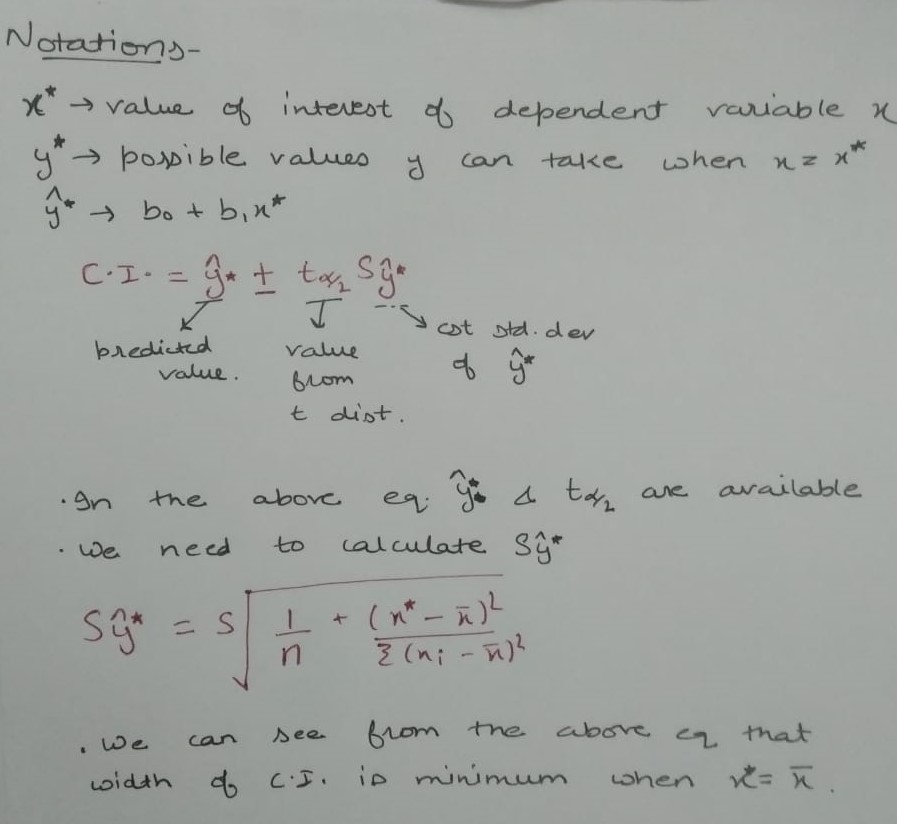 Notations-
x* → value of interest of dependent variable x
y* → possible values y can take when x = x*
ŷ* → b₀ + b₁x*
C.I. = ŷ* ± t α/2 Sŷ*
predicted value.
value from t dist.
est std. dev of ŷ*
· In the above eq. ŷ* & t α/2 are available
· We need to calculate Sŷ*
Sŷ* = S √( 1/n + (x* - x̄)² / Σ(xᵢ - x̄)² )
· We can see from the above eq that
width of C.I. is minimum when x* = x̄.